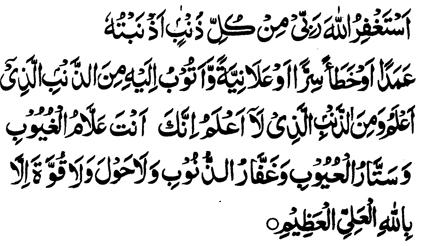 اَسْتَغْفِرُ اللّٰهَ رَبِّىْ مِنْ كُلِّ ذَنْۢبٍ اَذْنَبْتُهٗ
عَمَدًا اَوْ خَطَأً سِرًّا اَوْ عَلَانِيَةً وَّاَتُوْبُ اِلَيْهِ مِنَ الذَّنْۢبِ الَّذِىْٓ
اَعْلَمُ وَمِنَ الذَّنْۢبِ الَّذِىْ لَآ اَعْلَمُ اِنَّكَ اَنْتَ عَلَّامُ الْغُيُوْبِ
وَسَتَّارُ الْعُيُوْبِ وَغَفَّارُ الذُّنُوْبِ وَلَا حَوْلَ وَلَا قُوَّةَ اِلَّا
بِاللّٰهِ الْعَلِىِّ الْعَظِيْمِ ○